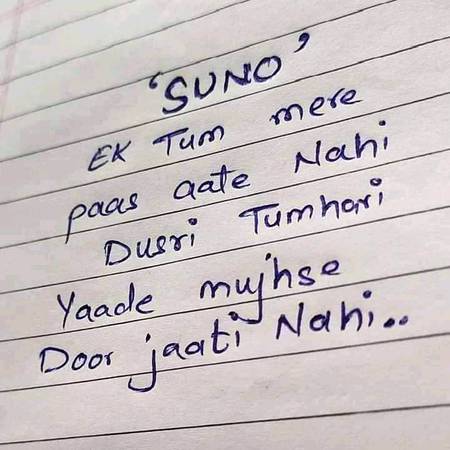 'SUNO'
EK Tum mere
paas aate Nahi
Dusri Tumhari
Yaade mujhse
Door jaati Nahi..